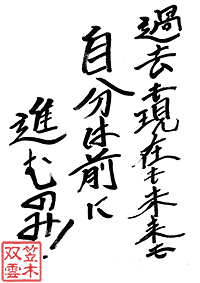 過去も現在も未来も
自分は前に
進むのみ！
笠木
双雲